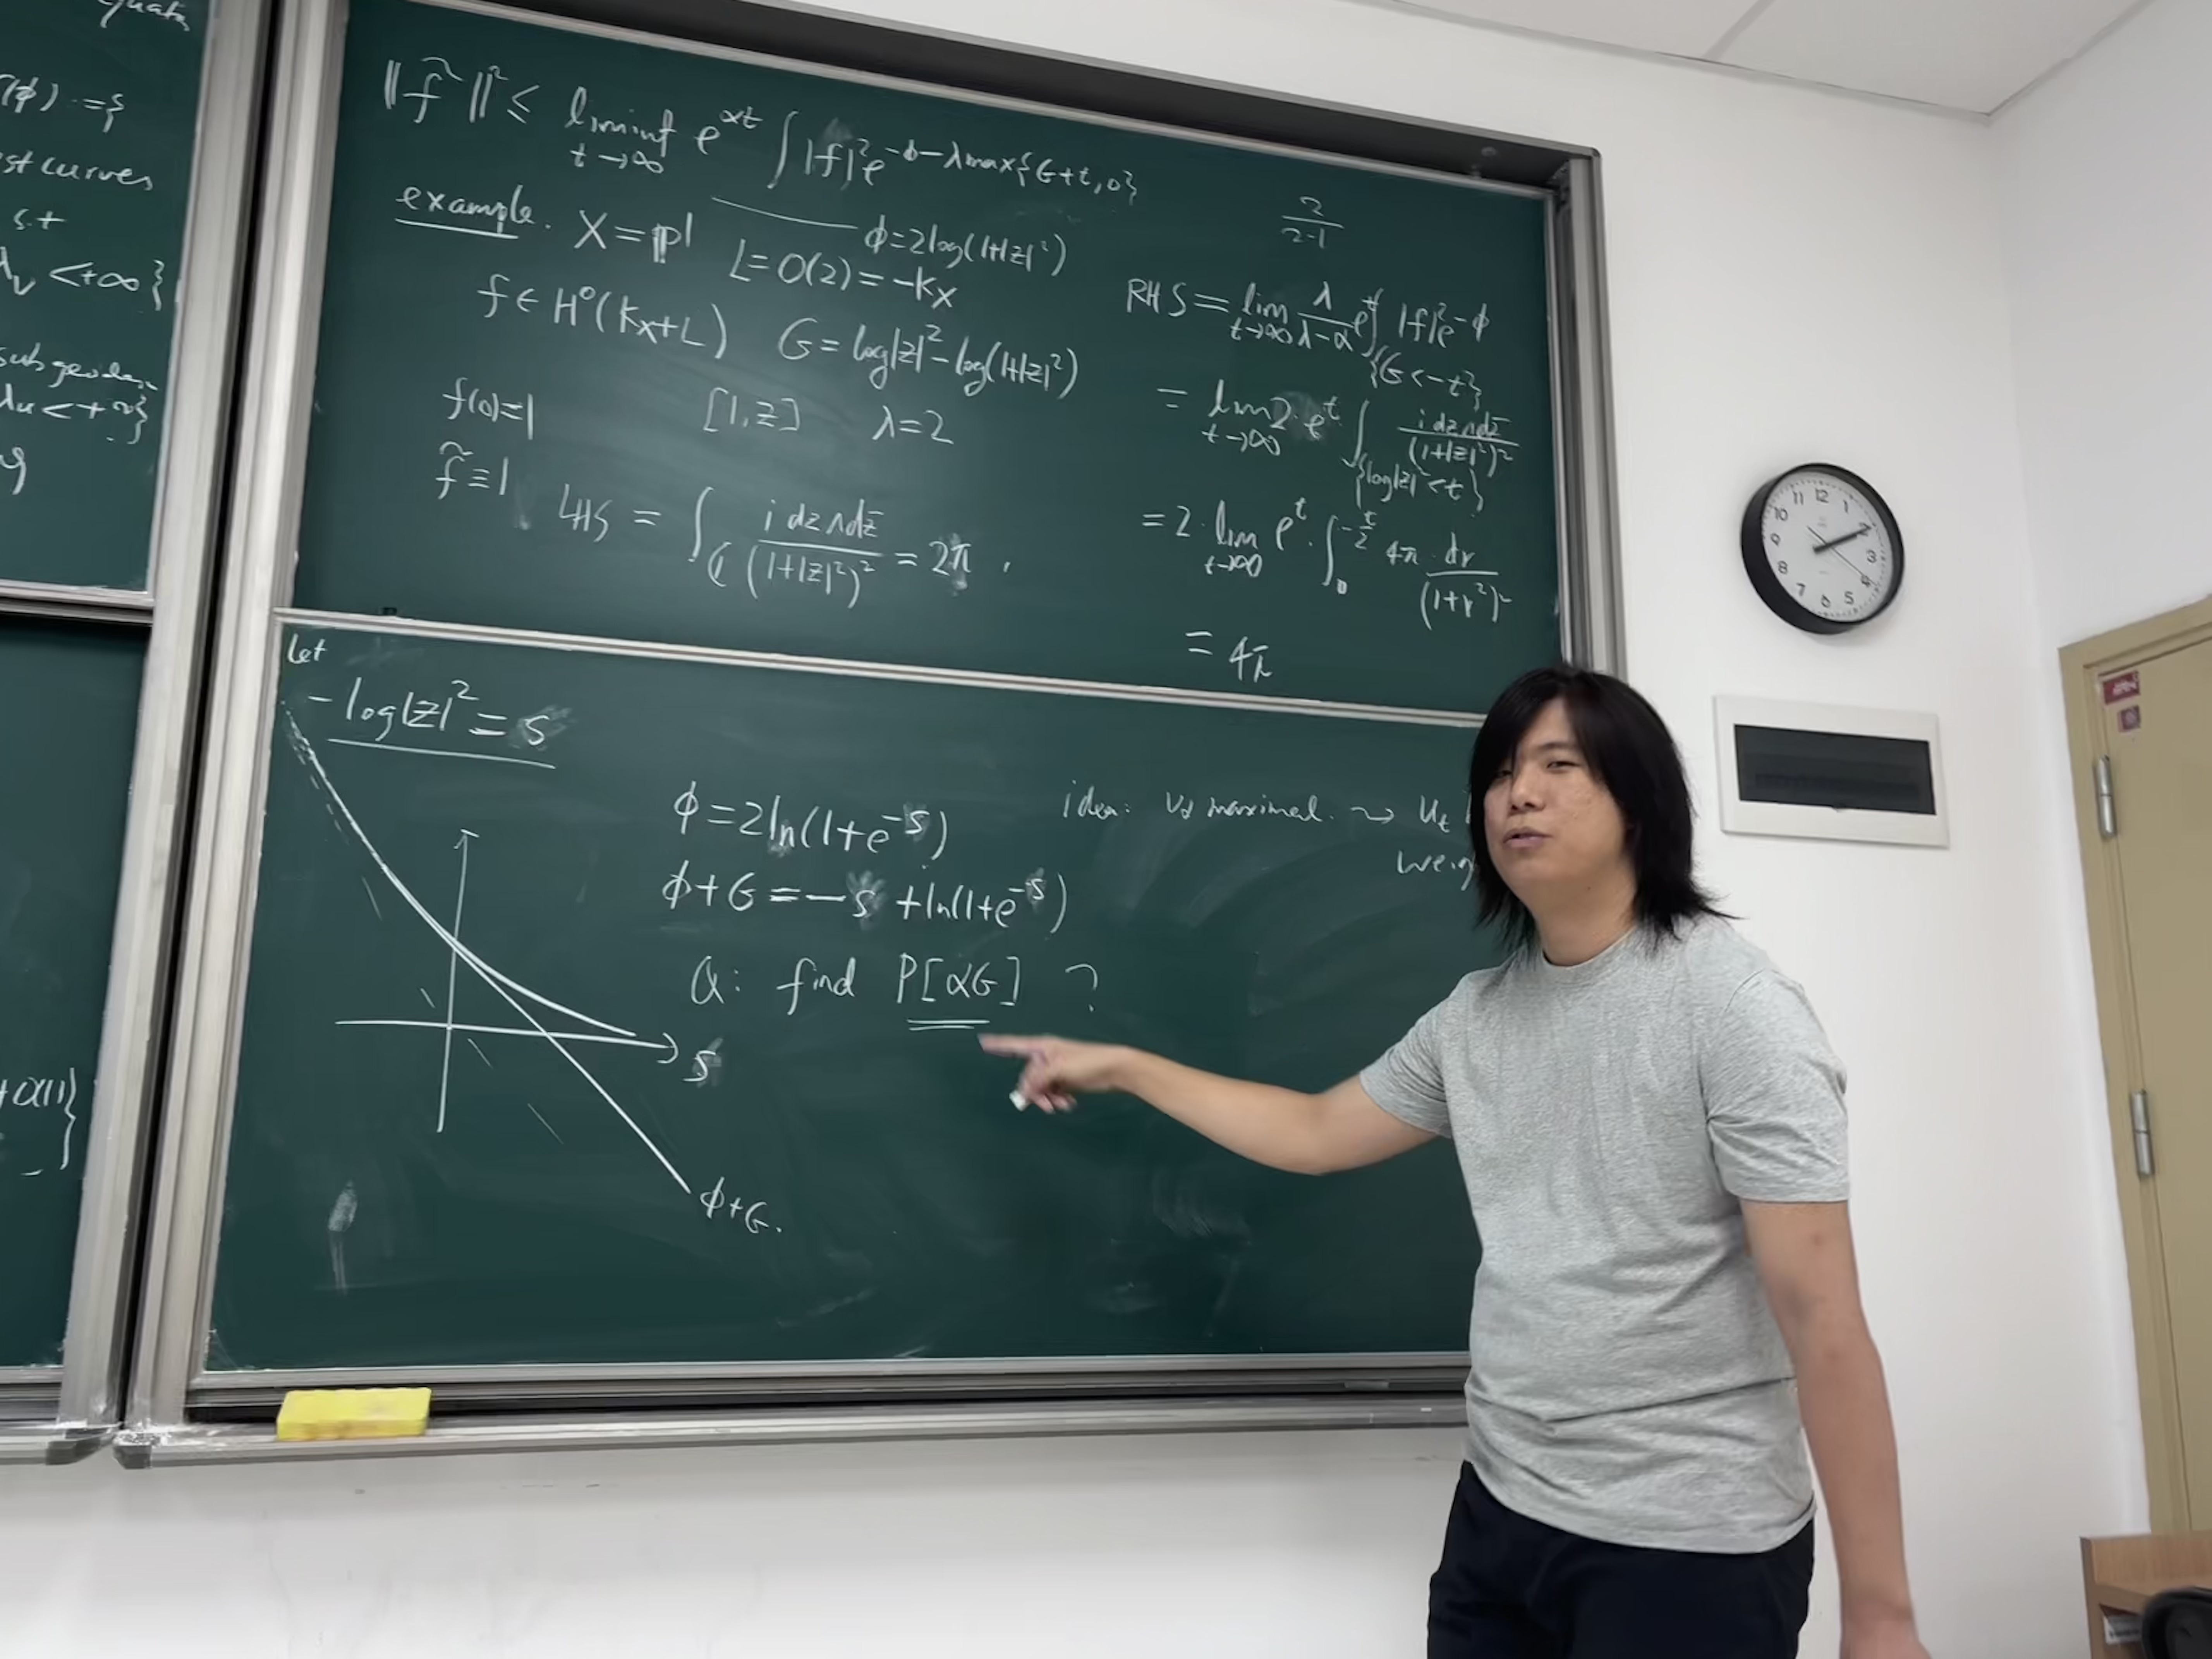 (ϕ) :={
st curves
s.t
λ_v <+∞}
subgeodes
λu<+∞}
+O(1)}
‖f̃‖² ≤ liminf_{t→∞} e^{αt} ∫|f|²e^{-ϕ-λmax{G+t,0}}
example. X=ℙ¹ ϕ=2log(1+|z|²)
L=O(2)=-K_X
f∈H⁰(K_X+L) G=log|z|²-log(1+|z|²)
f(0)=1 [1,z] λ=2
f̃≡1 LHS = ∫_ℂ i dz∧dz̄/(1+|z|²)² = 2π.
2/(2-1)
RHS = lim_{t→∞} λ/(λ-α) e^t ∫_{{G<-t}} |f|²e^{-ϕ}
= lim_{t→∞} 2·e^t ∫_{{log|z|²<t}} i dz∧dz̄/(1+|z|²)²
=2·lim_{t→∞} e^t·∫_0^{-t/2} 4π dr/(1+r²)²
= 4π
let
-log|z|²=s
ϕ=2ln(1+e^{-s})
ϕ+G=-s+ln(1+e^{-s})
Q: find P[αG] ?
s
ϕ+G.
idea: maximal. ⇝ u_t
weig
12
1
2
3
4
5
6
7
8
9
10
11